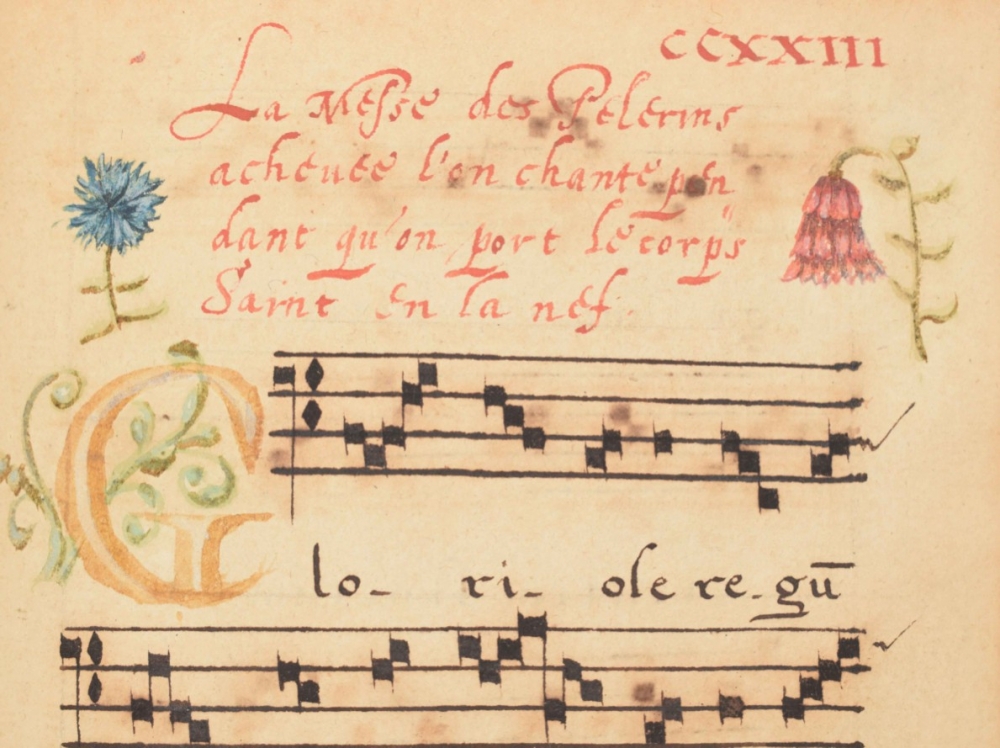 CCXXIII
La Messe des Pelerins
acheuee l'on chante pen
dant qu'on port le corps
Saint en la nef.
Glo- ri- ose re-gū